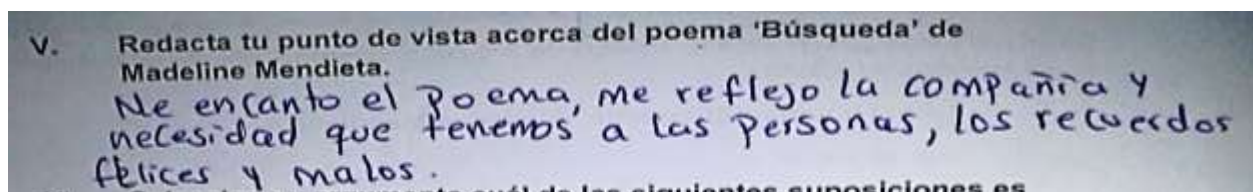 V. Redacta tu punto de vista acerca del poema 'Búsqueda' de
Madeline Mendieta.
Me encanto el Poema, me reflejo la compañia y
necesidad que tenemos a las personas, los recuerdos
felices y malos.
cuál de las siguientes suposiciones es